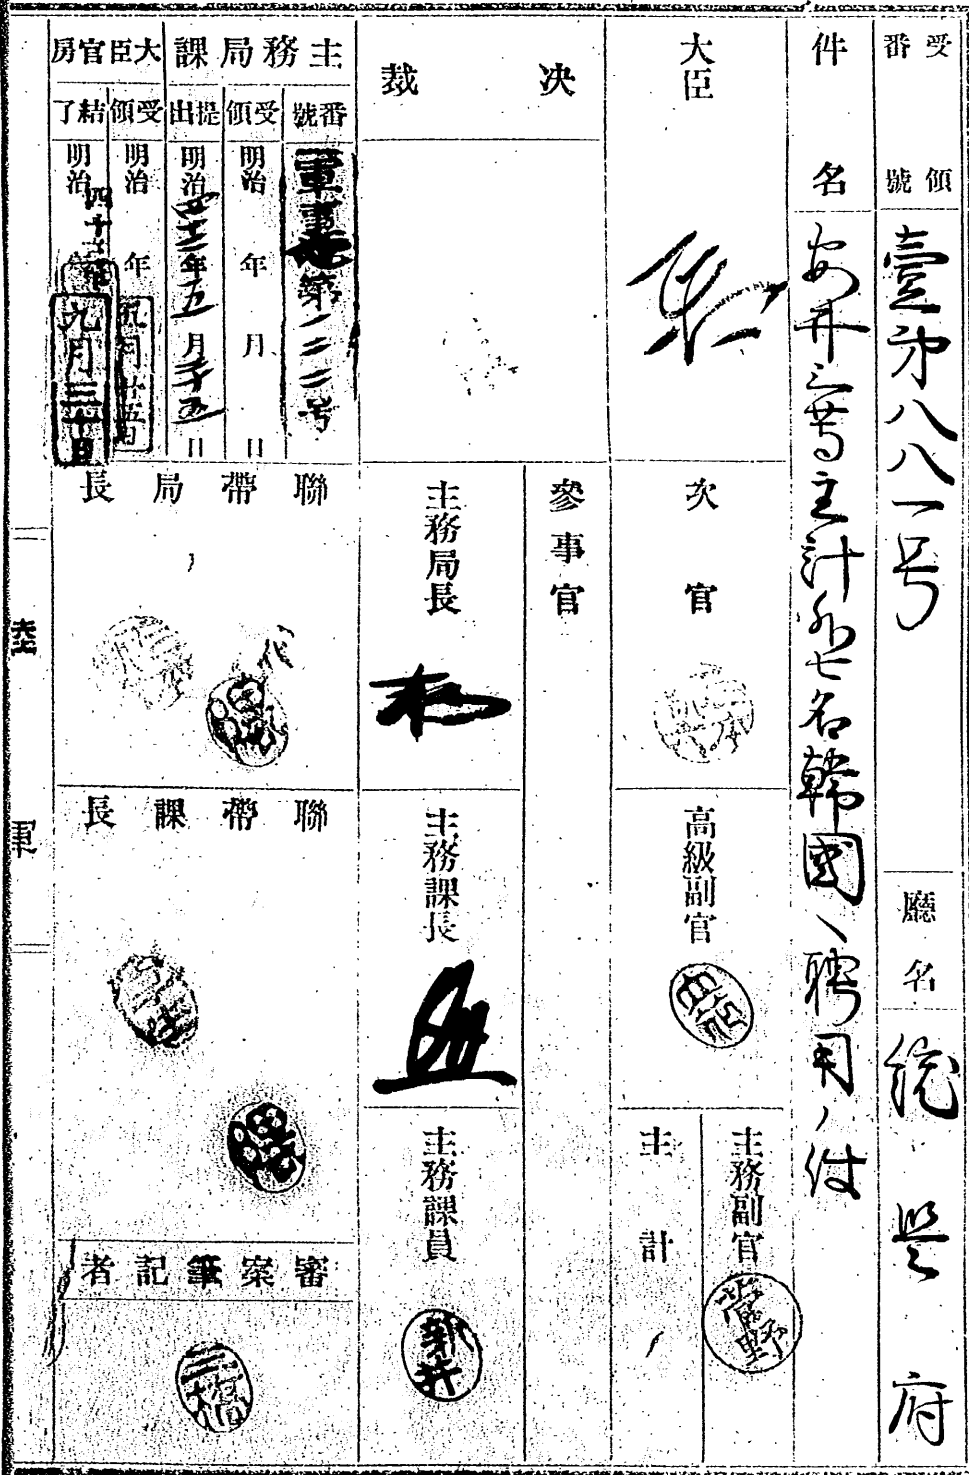 受領番號
壹第八八一号
廳名
統監府
件名
安井三等主計外七名韓國ヘ聘用ノ件
大臣
次官
高級副官
主務副官
菅野
主計
決裁
參事官
主務局長
主務課長
主務課員
新井
主務局課
番號
軍事 第一二二号
受領
明治 年 月 日
提出
明治四十二年五月二十五日
大臣官房
受領
明治 年五月廿五日
結了
明治四十二年九月三十日
聯帶局長
聯帶課長
審案筆記者
三橋
陸軍